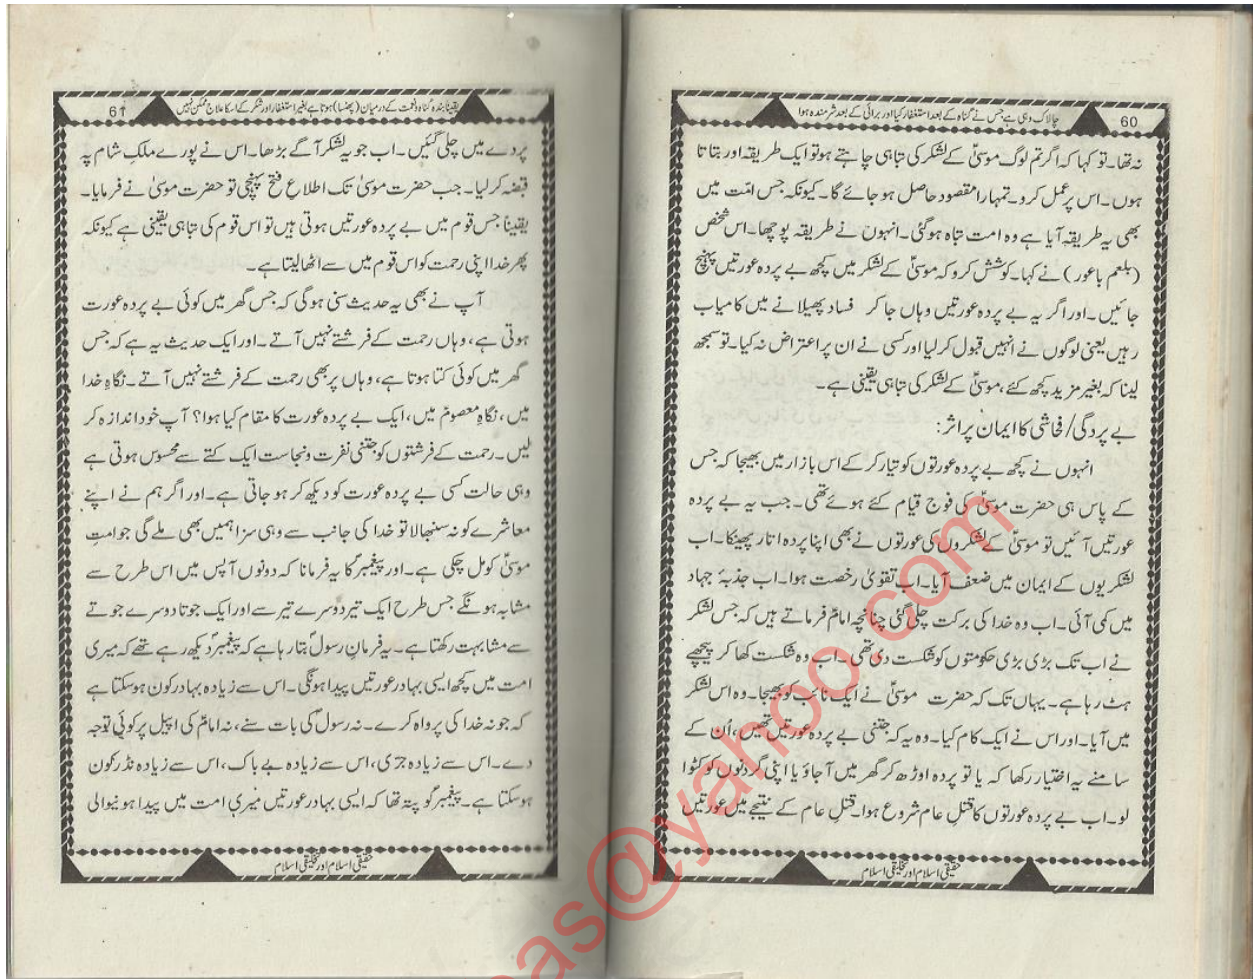 چالاک وہی ہے جس نے گناہ کے بعد استغفار کیا اور برائی کے بعد شرمندہ ہوا
60
نہ تھا۔ تو کہا کہ اگر تم لوگ موسیٰؑ کے لشکر کی تباہی چاہتے ہو تو ایک طریقہ اور بتاتا
ہوں۔ اس پر عمل کرو۔ تمہارا مقصود حاصل ہو جائے گا۔ کیونکہ جس امّت میں
بھی یہ طریقہ آیا ہے وہ امت تباہ ہو گئی۔ انہوں نے طریقہ پوچھا۔ اس شخص
(بلعم باعور) نے کہا۔ کوشش کرو کہ موسیٰؑ کے لشکر میں کچھ بے پردہ عورتیں پہنچ
جائیں۔ اور اگر یہ بے پردہ عورتیں وہاں جا کر فساد پھیلانے میں کامیاب
رہیں یعنی لوگوں نے انہیں قبول کر لیا اور کسی نے ان پر اعتراض نہ کیا۔ تو سمجھ
لینا کہ بغیر مزید کچھ کئے، موسیٰؑ کے لشکر کی تباہی یقینی ہے۔
بے پردگی/فحاشی کا ایمان پر اثر:
انہوں نے کچھ بے پردہ عورتوں کو تیار کر کے اس بازار میں بھیجا کہ جس
کے پاس ہی حضرت موسیٰؑ کی فوج قیام کئے ہوئے تھی۔ جب یہ بے پردہ
عورتیں آئیں تو موسیٰؑ کے لشکروں کی عورتوں نے بھی اپنا پردہ اتار پھینکا۔ اب
لشکریوں کے ایمان میں ضعف آیا۔ اب تقویٰ رخصت ہوا۔ اب جذبۂ جہاد
میں کمی آئی۔ اب وہ خدا کی برکت چلی گئی چنانچہ امامؑ فرماتے ہیں کہ جس لشکر
نے اب تک بڑی بڑی حکومتوں کو شکست دی تھی۔ اب وہ شکست کھا کر پیچھے
ہٹ رہا ہے۔ یہاں تک کہ حضرت موسیٰؑ نے ایک نائب کو بھیجا۔ وہ اس لشکر
میں آیا۔ اور اس نے ایک کام کیا۔ وہ یہ کہ جتنی بے پردہ عورتیں تھیں، اُن کے
سامنے یہ اختیار رکھا کہ یا تو پردہ اوڑھ کر گھر میں آ جاؤ یا اپنی گردنوں کو کٹوا
لو۔ اب بے پردہ عورتوں کا قتلِ عام شروع ہوا۔ قتلِ عام کے نتیجے میں عورتیں
حقیقی اسلام اور تخلیقی اسلام
یقیناً بندہ گناہ و نعمت کے درمیان (پھنسا) ہوتا ہے بغیر استغفار اور شکر کے اسکا علاج ممکن نہیں
61
پردے میں چلی گئیں۔ اب جو یہ لشکر آگے بڑھا۔ اس نے پورے ملکِ شام پہ
قبضہ کر لیا۔ جب حضرت موسیٰ تک اطلاعِ فتح پہنچی تو حضرت موسیٰ نے فرمایا۔
یقیناً جس قوم میں بے پردہ عورتیں ہوتی ہیں تو اس قوم کی تباہی یقینی ہے کیونکہ
پھر خدا اپنی رحمت کو اس قوم میں سے اٹھا لیتا ہے۔
آپ نے بھی یہ حدیث سنی ہو گی کہ جس گھر میں کوئی بے پردہ عورت
ہوتی ہے، وہاں رحمت کے فرشتے نہیں آتے۔ اور ایک حدیث یہ ہے کہ جس
گھر میں کوئی کتا ہوتا ہے، وہاں پر بھی رحمت کے فرشتے نہیں آتے۔ نگاہِ خدا
میں، نگاہِ معصومؑ میں، ایک بے پردہ عورت کا مقام کیا ہوا؟ آپ خود اندازہ کر
لیں۔ رحمت کے فرشتوں کو جتنی نفرت و نجاست ایک کتے سے محسوس ہوتی ہے
وہی حالت کسی بے پردہ عورت کو دیکھ کر ہو جاتی ہے۔ اور اگر ہم نے اپنے
معاشرے کو نہ سنبھالا تو خدا کی جانب سے وہی سزا ہمیں بھی ملے گی جو امتِ
موسیٰؑ کو مل چکی ہے۔ اور پیغمبرؐ کا یہ فرمانا کہ دونوں آپس میں اس طرح سے
مشابہ ہونگے جس طرح ایک تیر دوسرے تیر سے اور ایک جوتا دوسرے جوتے
سے مشابہت رکھتا ہے۔ یہ فرمانِ رسولؐ بتا رہا ہے کہ پیغمبرؐ دیکھ رہے تھے کہ میری
امت میں کچھ ایسی بہادر عورتیں پیدا ہونگی۔ اس سے زیادہ بہادر کون ہو سکتا ہے
کہ جو نہ خدا کی پرواہ کرے۔ نہ رسولؐ کی بات سنے، نہ امامؑ کی اپیل پر کوئی توجہ
دے۔ اس سے زیادہ جرّی، اس سے زیادہ بے باک، اس سے زیادہ نڈر کون
ہو سکتا ہے۔ پیغمبرؐ کو پتہ تھا کہ ایسی بہادر عورتیں میری امت میں پیدا ہونیوالی
حقیقی اسلام اور تخلیقی اسلام
as@yahoo.com